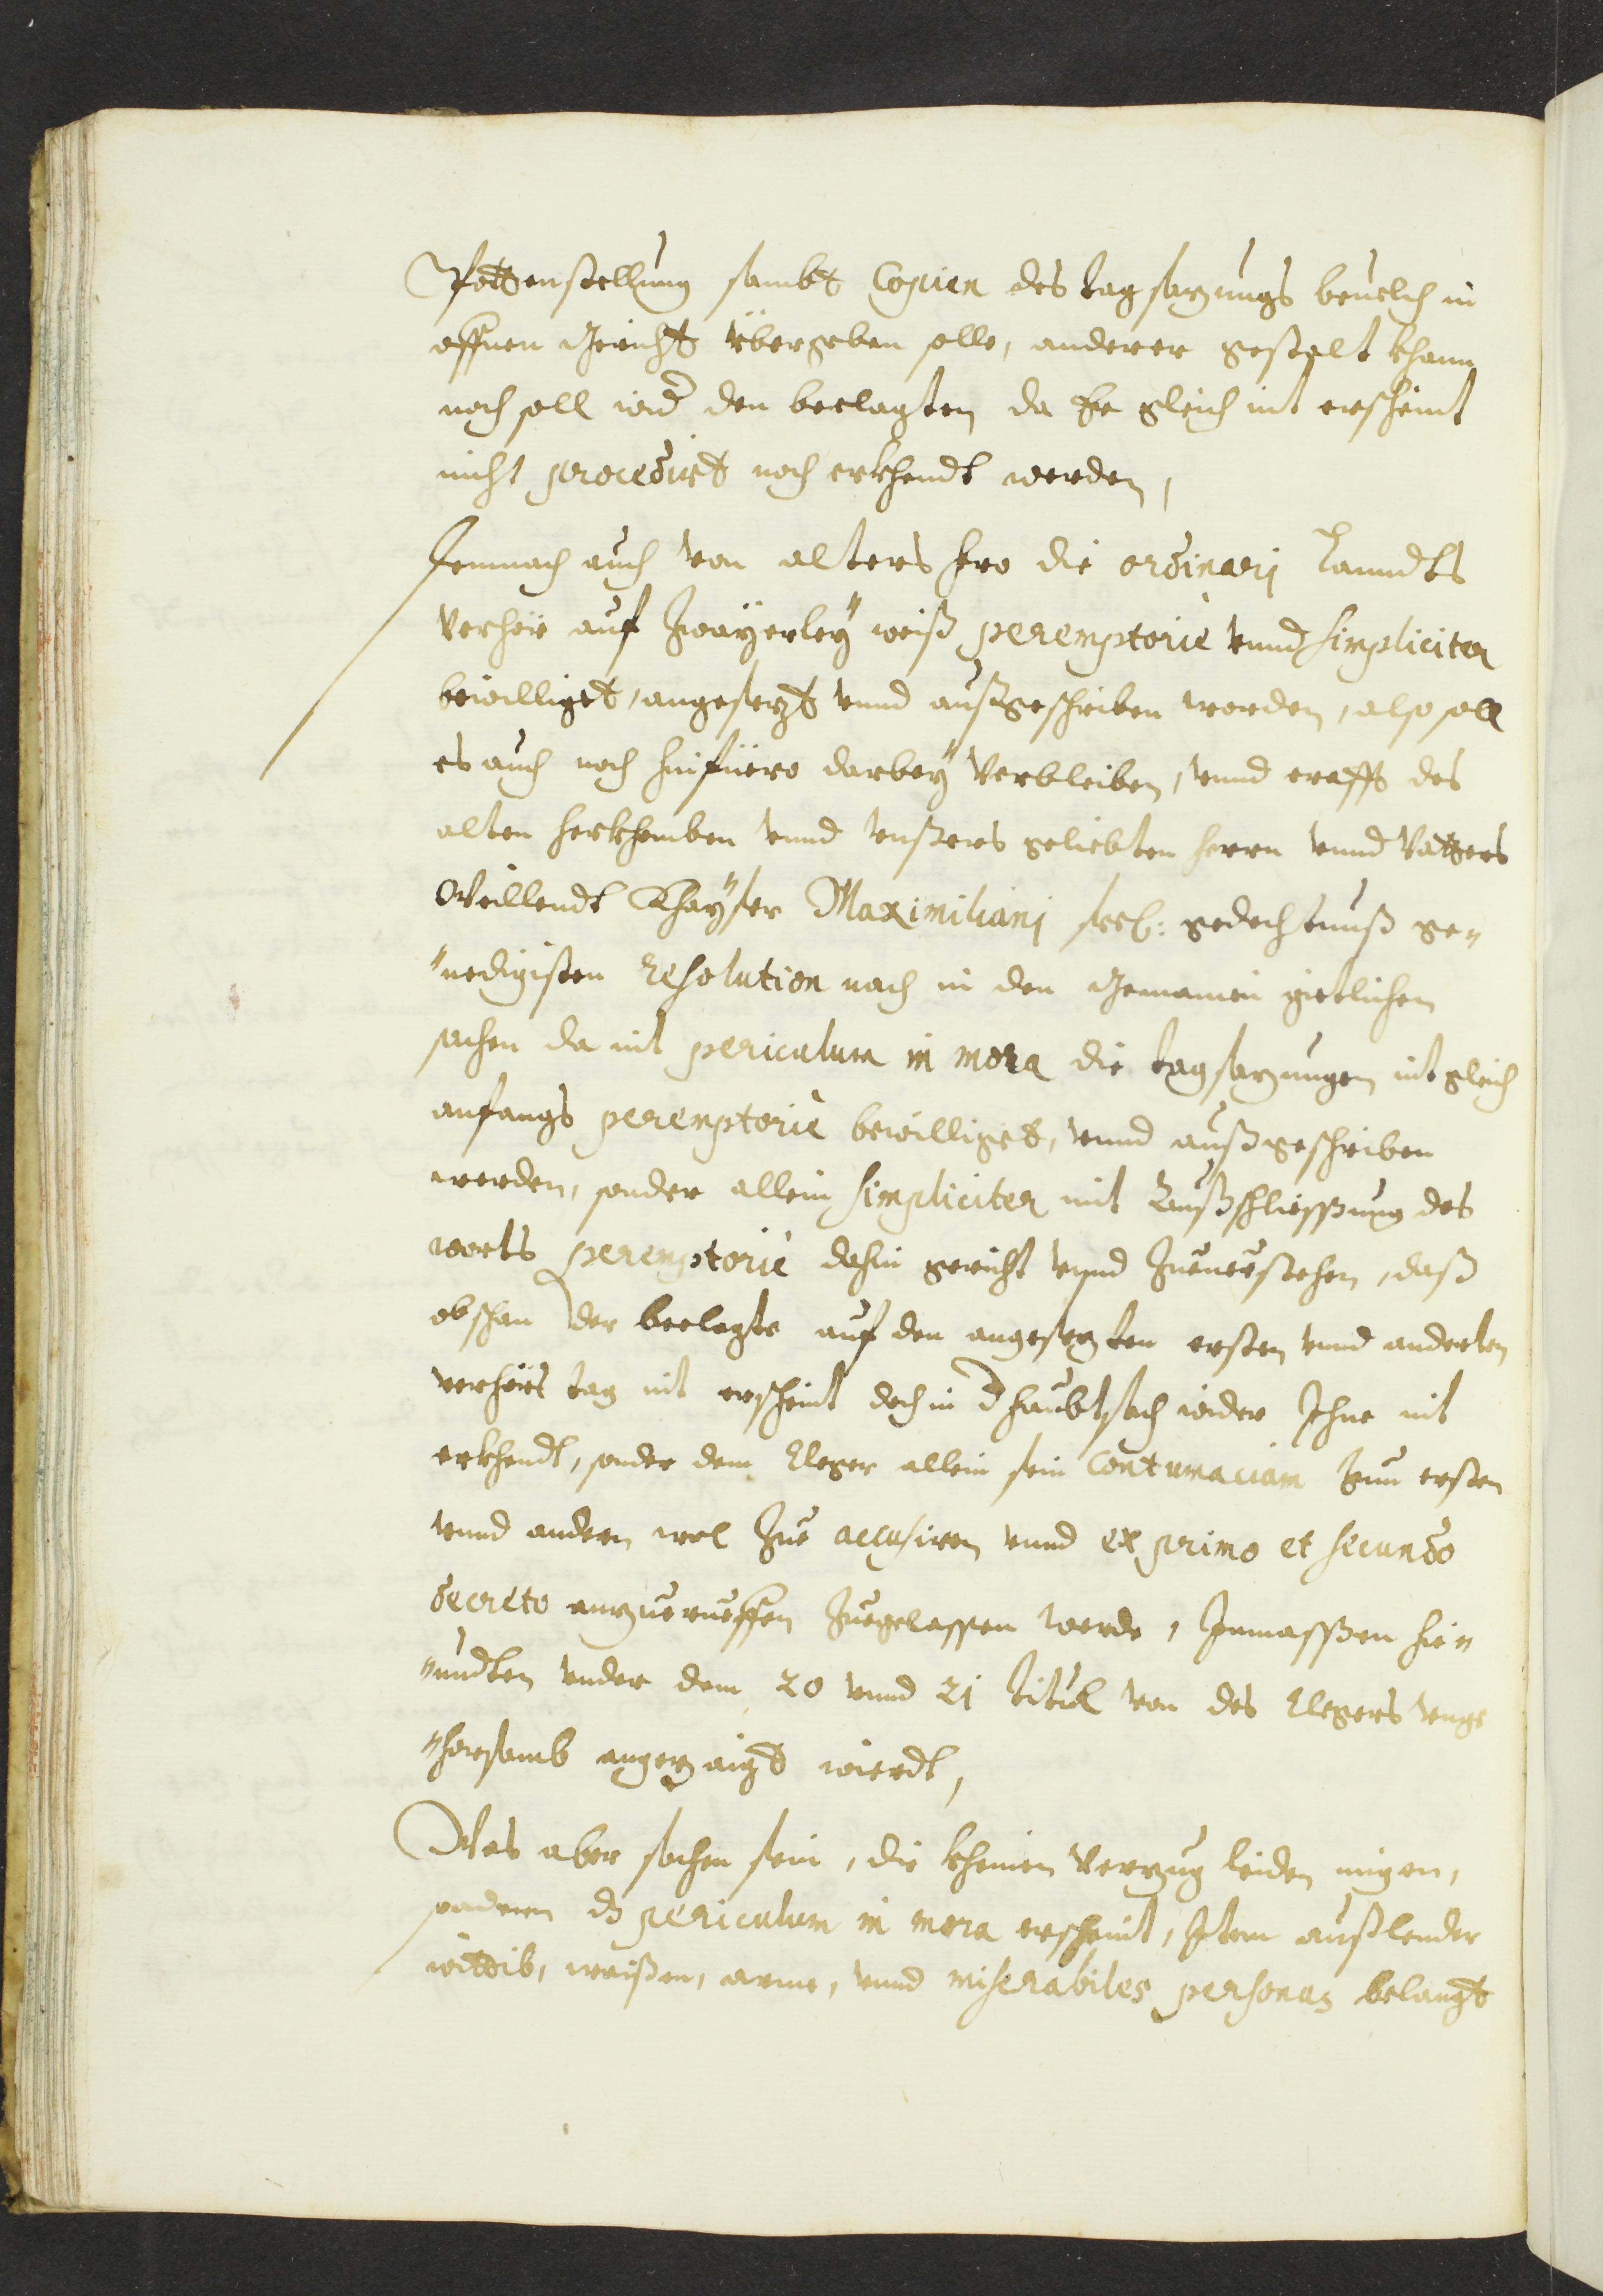 Pottenstellung sambt Copien des tagsazungs beuelch in
offnen Gericht vbergeben solle, anderer gestalt khann
noch soll wid den beclagten da Er gleich nit erscheint
nicht procedirt noch erkhendt werden,
Demnach auch von alters hero die ordinarj Lanndts
Verhör auf Zwayerley weiß peremptoriè vnnd simpliciter
bewilliget, angesezt vnnd außgeschriben worden, also soll
es auch noch hinfüero darbey Verbleiben, vnnd crafft des
alten herkhomben vnnd vnßers geliebten Herrn vnnd Vatters
Weillendt Khayser Maximilianj seel: gedechtnuß ge„
„nedigisten resolution nach in den Gemainen gietlichen
sachen da nit periculum in mora die tagsazungen nit gleich
anfangs peremptoriè bewilliget, vnnd außgeschriben
werden, sonder allein simpliciter mit Außschliessung des
worts peremptoriè dahin gericht vnnd Zuuerstehen, daß
obschon der beclagte auf den angesezten ersten vnnd anderten
verhörs tag nit erscheint doch in d haubtsach wider Ihne nit
erkhendt, sonder dem Cleger allein sein Contumaciam Zum ersten
vnnd andern mal Zue accusiren vnnd ex primo et secundo
decreto anzueruessen Zuegelassen werde, Inmassen hie„
„undten vnder dem 20 vnnd 21 titul von des Clegers vnge
„horsamb angezaigt wierdt,
Was aber sachen sein, die kheinen Verzug leiden migen,
sondern dz periculum in mora erscheint, Item außlender
wittib, waißen, arme, vnnd miserabiles personas belangt